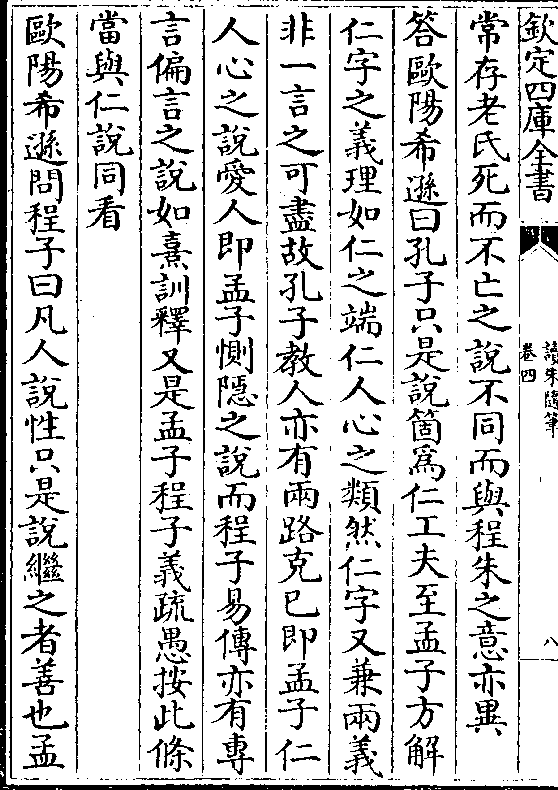 欽定四庫全書
讀朱隨筆
卷四
八
常存老氏死而不亡之說不同而與程朱之意亦異
答歐陽希遜曰孔子只是說箇為仁工夫至孟子方解
仁字之義理如仁之端仁人心之類然仁字又兼兩義
非一言之可盡故孔子教人亦有兩路克已即孟子仁
人心之說愛人即孟子惻隱之說而程子易傳亦有專
言偏言之說如熹訓釋又是孟子程子義疏愚按此條
當與仁說同看
歐陽希遜問程子曰凡人說性只是說繼之者善也孟